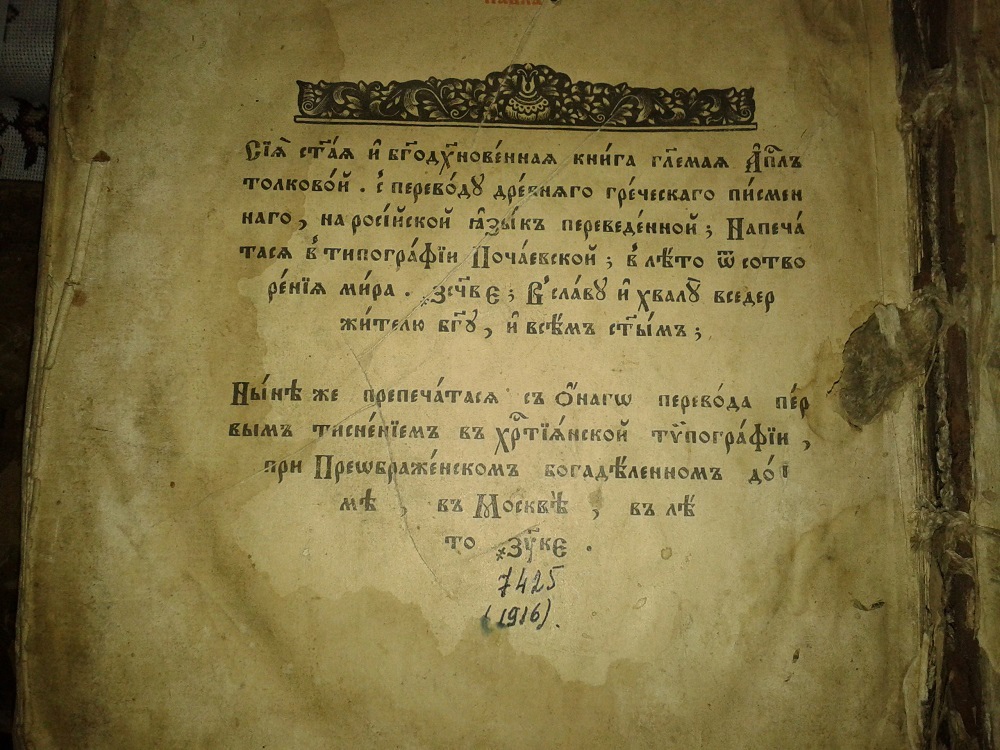 Сїѧ҄ ст҃а́ѧ и҆ бг҃одх҃нове́ннаѧ кни́га гл҃емаѧ А҆пⷭ҇лъ
толково́й . с̾ перево́дꙋ дре́внѧго гре́ческаго пи́смен
наго , на росі́йской ꙗ҆зы́къ переведе́нной ; Напеча́
тасѧ в̾ типогра́фїи Поча́евской ; в̾ лѣ́то ѿ сотво
ре́нїѧ ми́ра . ҂зсч҃в є ; В̾ сла́вꙋ и҆ хвалꙋ̀ вседер
жи́телю бг҃ꙋ , и҆ всѣ́мъ ст҃ы́мъ ;
Ны́нѣ же препеча́тасѧ съ ѻ҆́нагѡ перево́да пе́р
вымъ тисне́нїемъ въ хрⷭ҇тїѧ́нской тѷпогра́фїи ,
при Преѡбраже́нском богадѣ́ленном до́
мѣ , въ Москвѣ̀ , въ лѣ́
то ҂зу҃кє .
7425
(1916).